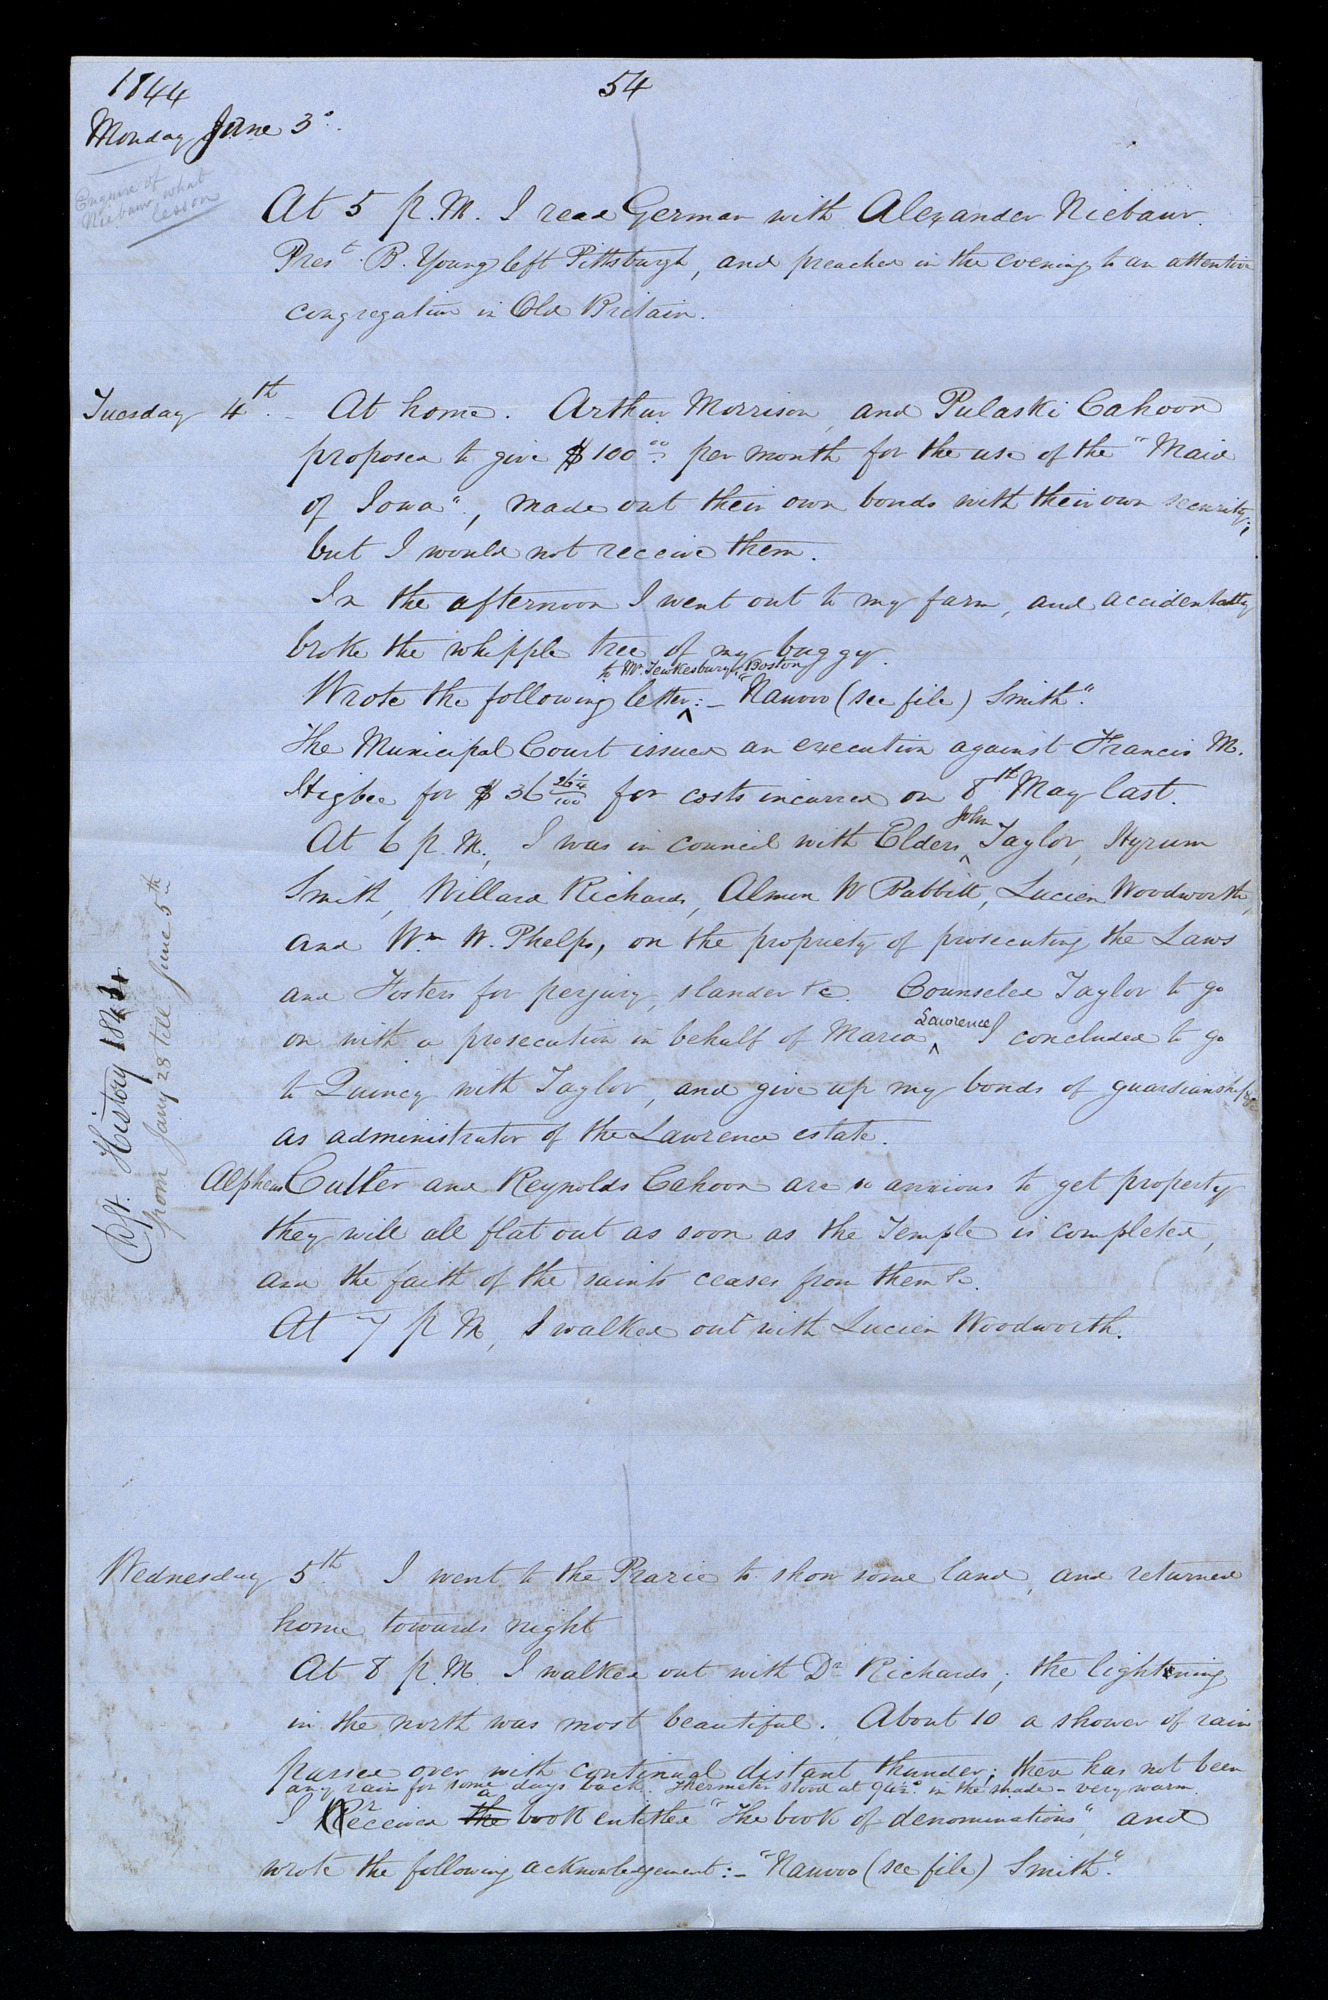 1844
54
Monday June 3d.
Enquire of
Niebaur what
lesson
At 5 p.M. I read German with Alexander Niebaur.
Prest. B. Young left Pittsburgh, and preached in the evening to an attentive
congregation in Old Britain.
Tuesday 4th. – At home. Arthur Morrison, and Pulaski Cahoon
proposed to give $100.00 per month for the use of the "Maid
of Iowa", made out their own bonds with their own security;
but I would not receive them.
In the afternoon I went out to my farm, and accidentally
broke the whipple tree of my buggy.
to Mr. Tewkesbury, Boston
Wrote the following letter ^:– "Nauvoo (see file) Smith".
The Municipal Court issued an execution against Francis M.
Higbee for $36 26¼/100 for costs incurred on 8th May last.
John
At 6 p.M., I was in council with Elders ^ Taylor, Hyrum
Smith, Willard Richards, Almon W Babbitt, Lucien Woodworth,
and Wm. W. Phelps, on the propriety of prosecuting the Laws
and Fosters for perjury, slander &c. Counseled Taylor to go
Lawrence
on with a prosecution in behalf of Maria ^ I concluded to go
to Quincy with Taylor, and give up my bonds of guardianship &c
as administrator of the Lawrence estate.
Alpheus Cutler and Reynolds Cahoon are so anxious to get property
they will all flat out as soon as the Temple is completed,
and the faith of the saints ceases from them &c.
At 7 p M, I walked out with Lucien Woodworth.
Dft. History 1843.
from Jany 28 till June 5th
Wednesday 5th. I went to the Prarie to show some land, and returned
home towards night
At 8 p.M. I walked out with Dr. Richards; the lightning
in the north was most beautiful. About 10 a shower of rain
passed over with continual distant thunder; there has not been
any rain for some days back. Thermeter stood at 94½° in the shade – very warm.
a
I Received the book entitled "The book of denominations", and
wrote the following acknowledgement:– "Nauvoo (see file) Smith".